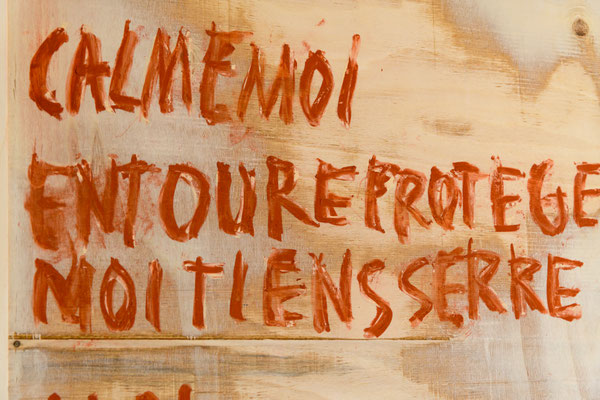 CALMEMOI
ENTOUREPROTEGE
MOITIENSSERRE